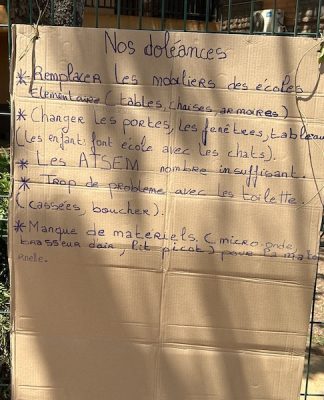 Nos doléances
* Remplacer les mobiliers des écoles
Elementaire (tables, chaises, armoires)
* Changer les portes, les fenêtres, tableau
(les enfants font école avec les chats).
* Les ATSEM nombre insuffisant.
* Trop de problème avec les toilette.
(cassées, boucher).
* Manque de materiels, (micro-onde,
brasseur d'air, lit picot) pour la mater
nelle.